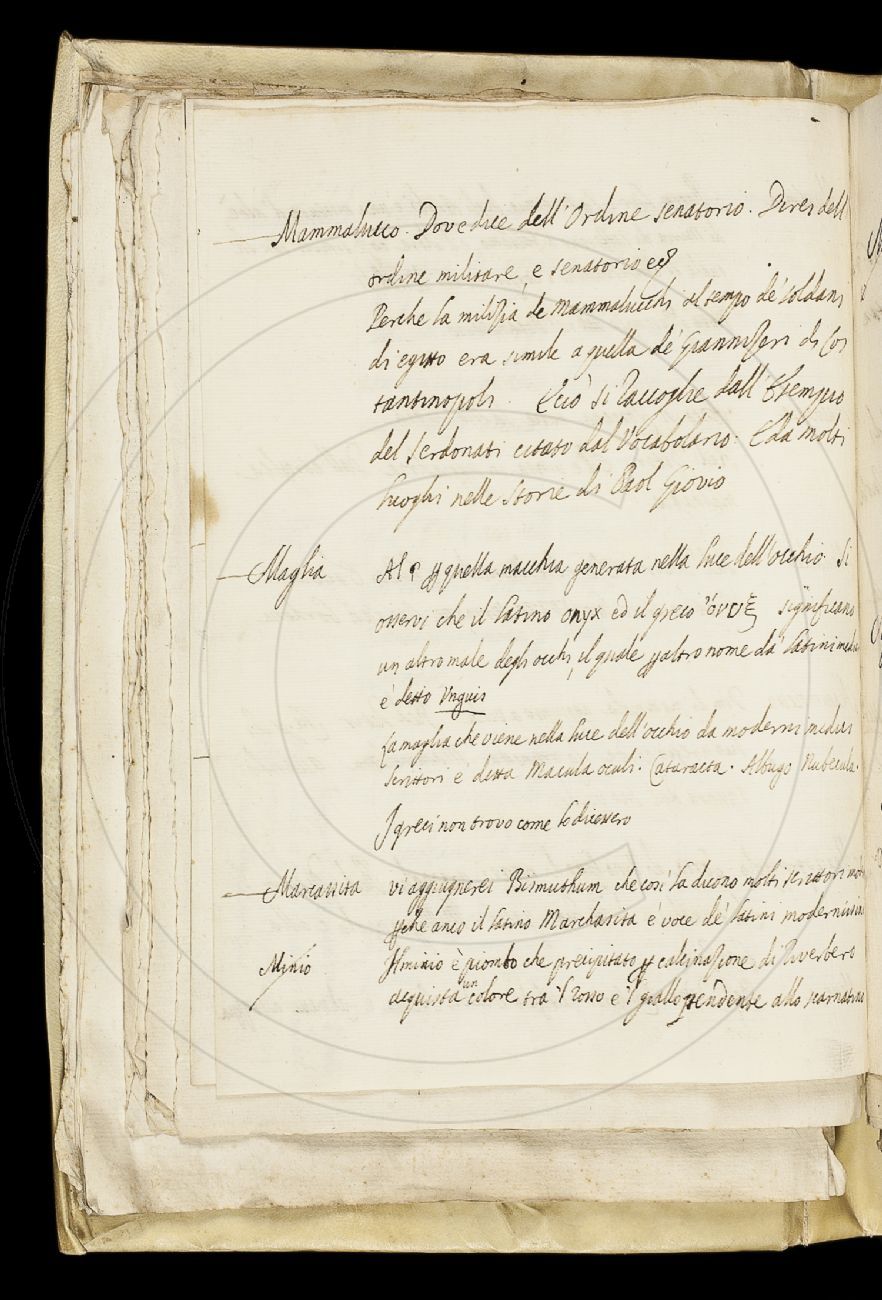 Mammalucco. Dove dice dell'Ordine senatorio. Direi dell
ordine militare, e senatorio
Perche la milizia de Mammalucchi al tempo de' soldani
di egitto era simile a quella de' Giannizzeri di Cos
tantinopoli. E ciò si raccoglie dall'Esempio
del Serdonati citato dal Vocabolario. E da molti
luoghi nelle storie di Paol Giovio
Maglia Al quella macchia generata nella luce dell'occhio. Si
osservi che il latino onyx ed il greco ὄνυξ significano
un altro male degli occhi, il quale altro nome da' latini
è detto Unguis
La maglia che viene nella luce dell'occhio da moderni medici
scrittori è detta Macula oculi. Cataracta. Albugo Nubecula.
I greci non trovo come lo dicessero
Marcassita vi aggiugnerei Bismuthum che così la dicono molti scrittori
che anco il latino Marchasita è voce de' latini modernissimi
Minio Il minio è piombo che precipitato calcinazione di Riverbero
acquista un colore tra 'l rosso e 'l giallo pendente allo scarnatino